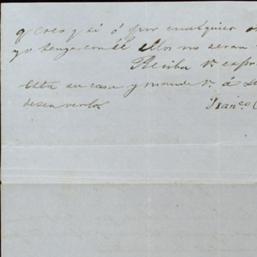 q creo q si ó por cualquier
yo tenga con él ellos no seran
Reciba Vª
Esta su casa y mande Vª á
desea verlos
Franco